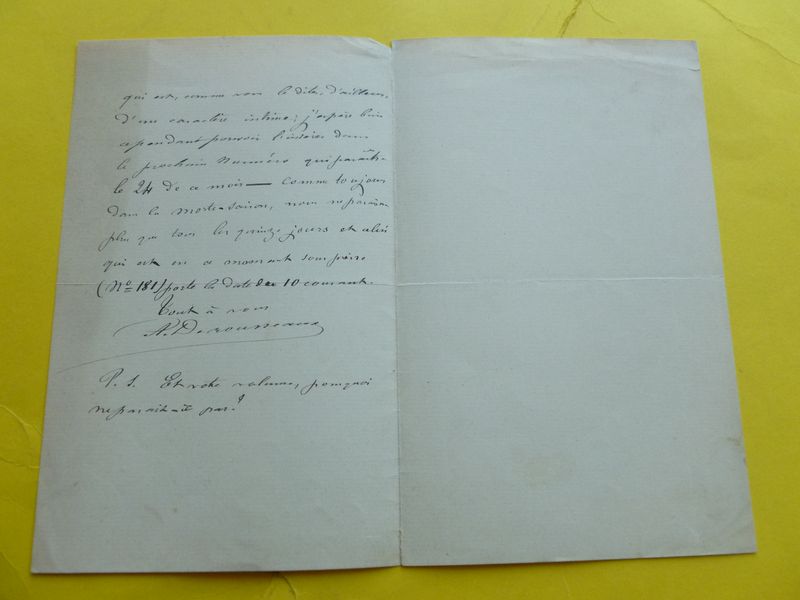 qui est, comme vous le dites d'ailleurs,
d'un caractère intime; j'espère bien
cependant pouvoir l'insérer dans
le prochain Numéro qui paraîtra
le 24 de ce mois — Comme toujours
dans la morte-saison, nous ne paraissons
plus que tous les quinze jours et celui
qui est en ce moment sous presse
(No 181) porte la date du 10 courant.
Tout à vous
A. Derousseaux
P. S. Et votre volume, pourquoi
ne parait-il pas?